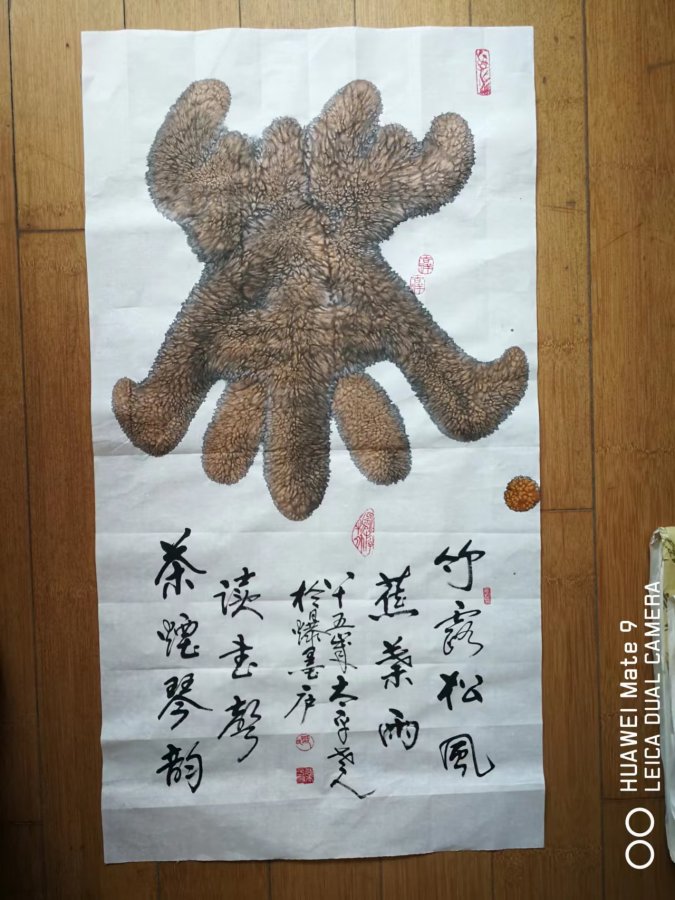 竹露松風
蕉葉雨
茶煙琴韵
读书聲
八十五歲太平老人
於爆墨庐
HUAWEI Mate 9
LEICA DUAL CAMERA